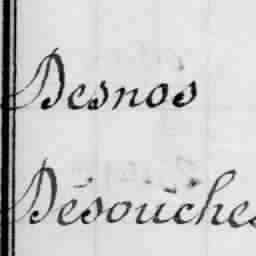 Desnos
Désouches